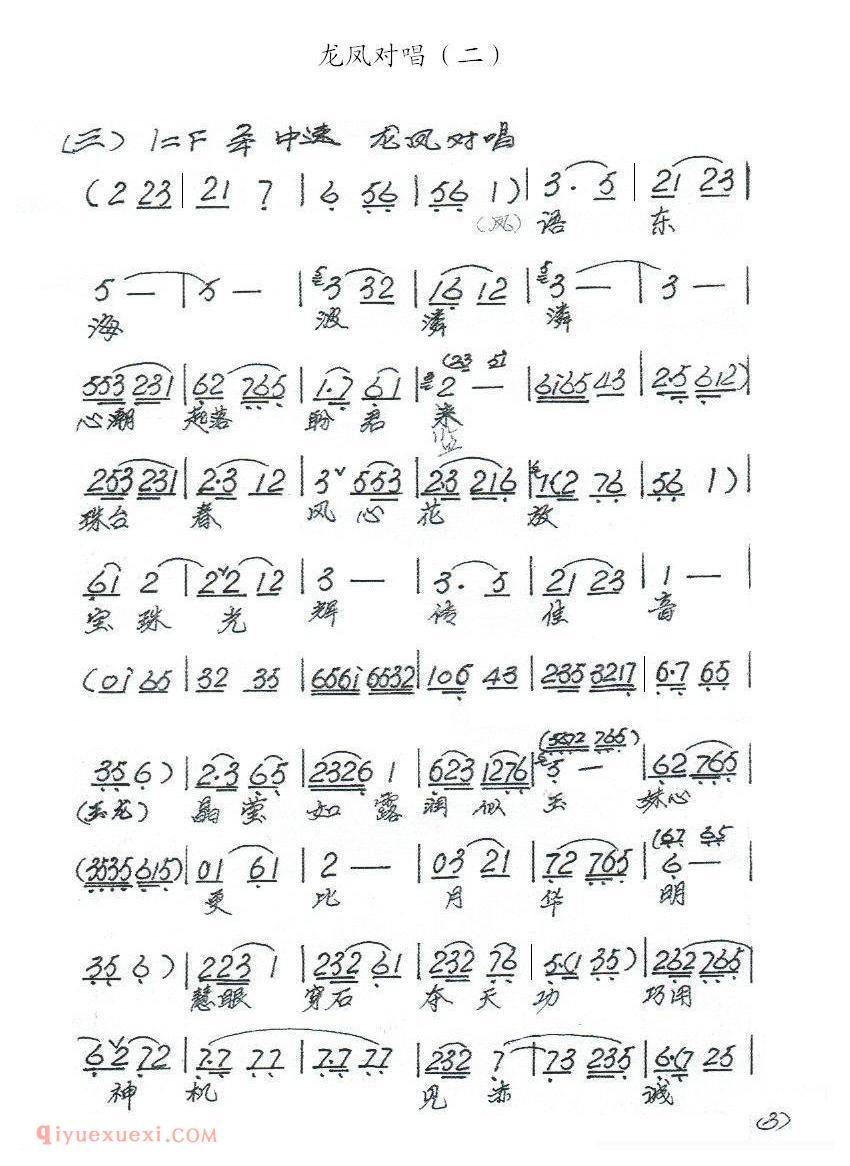 龙凤对唱（二）
（三）1=F 中速 龙凤对唱
(2 23 | 21 7 | 6 56 | 56 1) | 3. 5 | 21 23 |
（凤）语 东
5 — | 5 — | 3 32 | 16 12 | 3 — | 3 — |
海 波 潾 潾
553 231 | 62 765 | 1·7 61 | 2 — | 6i65 43 | 2·5 612) |
心潮 起落 盼 君 来
253 231 | 2·3 12 | 3 553 | 23 216 | 1(2 76 | 56 1) |
珠台 春 风 心 花 放
61 2 | 22 12 | 3 — | 3. 5 | 21 23 | 1 — |
宝 珠 光 辉 传 佳 音
(0i 65 | 32 35 | 656i 6532 | 106 43 | 235 3217 | 6·7 65 |
35 6) | 2·3 65 | 2326 1 | 623 1276 | 5 — | 62 765 |
（玉龙） 晶 莹 如 露 润 似 玉 珠心
(3535 615) | 01 61 | 2 — | 03 21 | 72 765 | 6 — |
更 比 月 华 明
35 6) | 223 1 | 232 61 | 232 76 | 5·(1 35) | 262 765 |
慧眼 穿石 夺 天 功 巧用
62 72 | 7·7 77 | 7·7 77 | 232 7 | 73 235 | 6·(7 25 |
神 机 见 赤 诚
qiyuexuexi.com
(3)